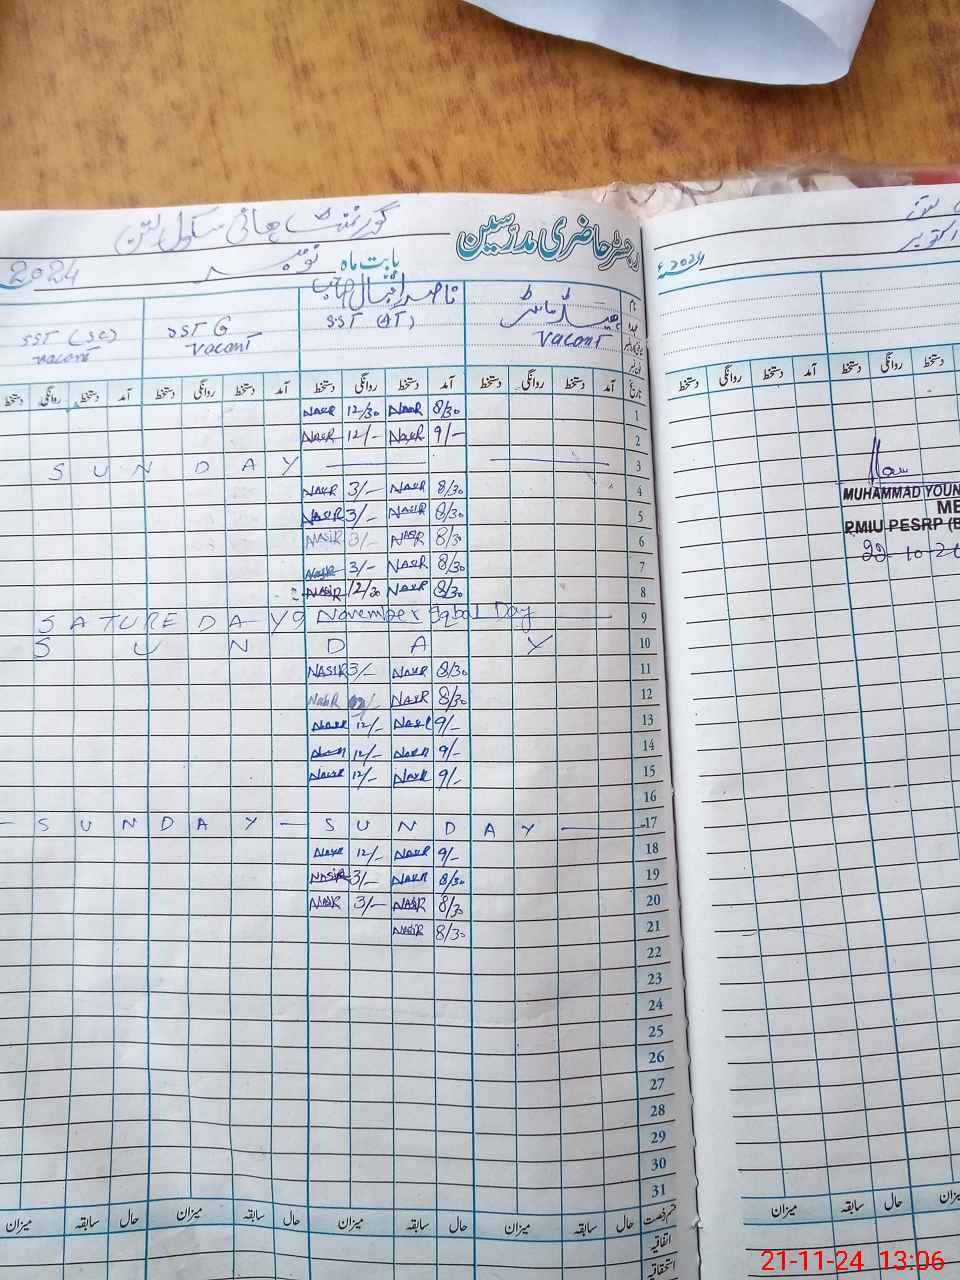 گورنمنٹ ہائی سکول لتن
رجسٹر حاضری مدرسین
بابت ماہ نومبر 2024
ناصر اقبال صاحب
ہیڈ ماسٹر
نام
SST (SC) SST G SST (AT)
vacant vacant vacant
دستخط روانگی دستخط آمد دستخط روانگی دستخط آمد دستخط روانگی دستخط آمد تاریخ
NASIR 12/30 NASIR 8/30 1
NASIR 12/- NASIR 9/- 2
SUNDAY 3
NASIR 3/- NASIR 8/30 4
NASIR 3/- NASIR 8/30 5
NASIR 3/- NASIR 8/30 6
NASIR 3/- NASIR 8/30 7
NASIR 12/30 NASIR 8/30 8
SATUREDAY 9 November Iqbal Day 9
SUNDAY 10
NASIR 3/- NASIR 8/30 11
NASIR NASIR 8/30 12
NASIR 12/- NASIR 9/- 13
NASIR 12/- NASIR 9/- 14
NASIR 12/- NASIR 9/- 15
16
- SUNDAY - SUNDAY - 17
NASIR 12/- NASIR 9/- 18
NASIR 3/- NASIR 8/30 19
NASIR 3/- NASIR 8/30 20
NASIR 8/30 21
22
23
24
25
26
27
28
29
30
31
میزان سابقہ حال میزان سابقہ حال میزان سابقہ حال میزان سابقہ حال قسم رخصت
اتفاقیہ
استحقاقیہ
اکتوبر
2024ء
دستخط روانگی دستخط آمد دستخط روانگی
MUHAMMAD YOUN
ME
PMIU PESRP (B
22-10-20
میزان سابقہ حال میزان
21-11-24 13:06